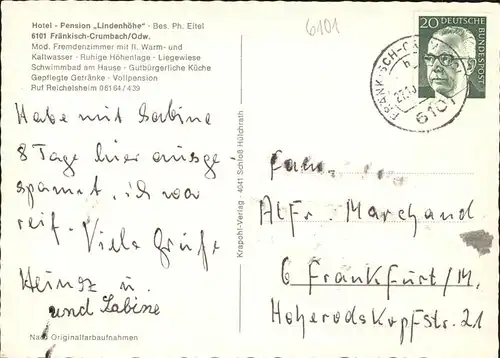 Hotel - Pension „Lindenhöhe" · Bes. Ph. Eitel
6101 Fränkisch-Crumbach/Odw.
Mod. Fremdenzimmer mit fl. Warm- und
Kaltwasser · Ruhige Höhenlage · Liegewiese
Schwimmbad am Hause · Gutbürgerliche Küche
Gepflegte Getränke · Vollpension
Ruf Reichelsheim 06164/439
Habe mit Sabine
8 Tage hier ausge-
spannt, ich war
reif. Viele Grüße
Heinz u.
und Sabine
Nach Originalfarbaufnahmen
Krapohl-Verlag · 4041 Schloß Hülchrath
6101
20 DEUTSCHE
BUNDESPOST
6101
Fam.
Alfr. Marchand
6 Frankfurt/M.
Hoherodskopfstr. 21